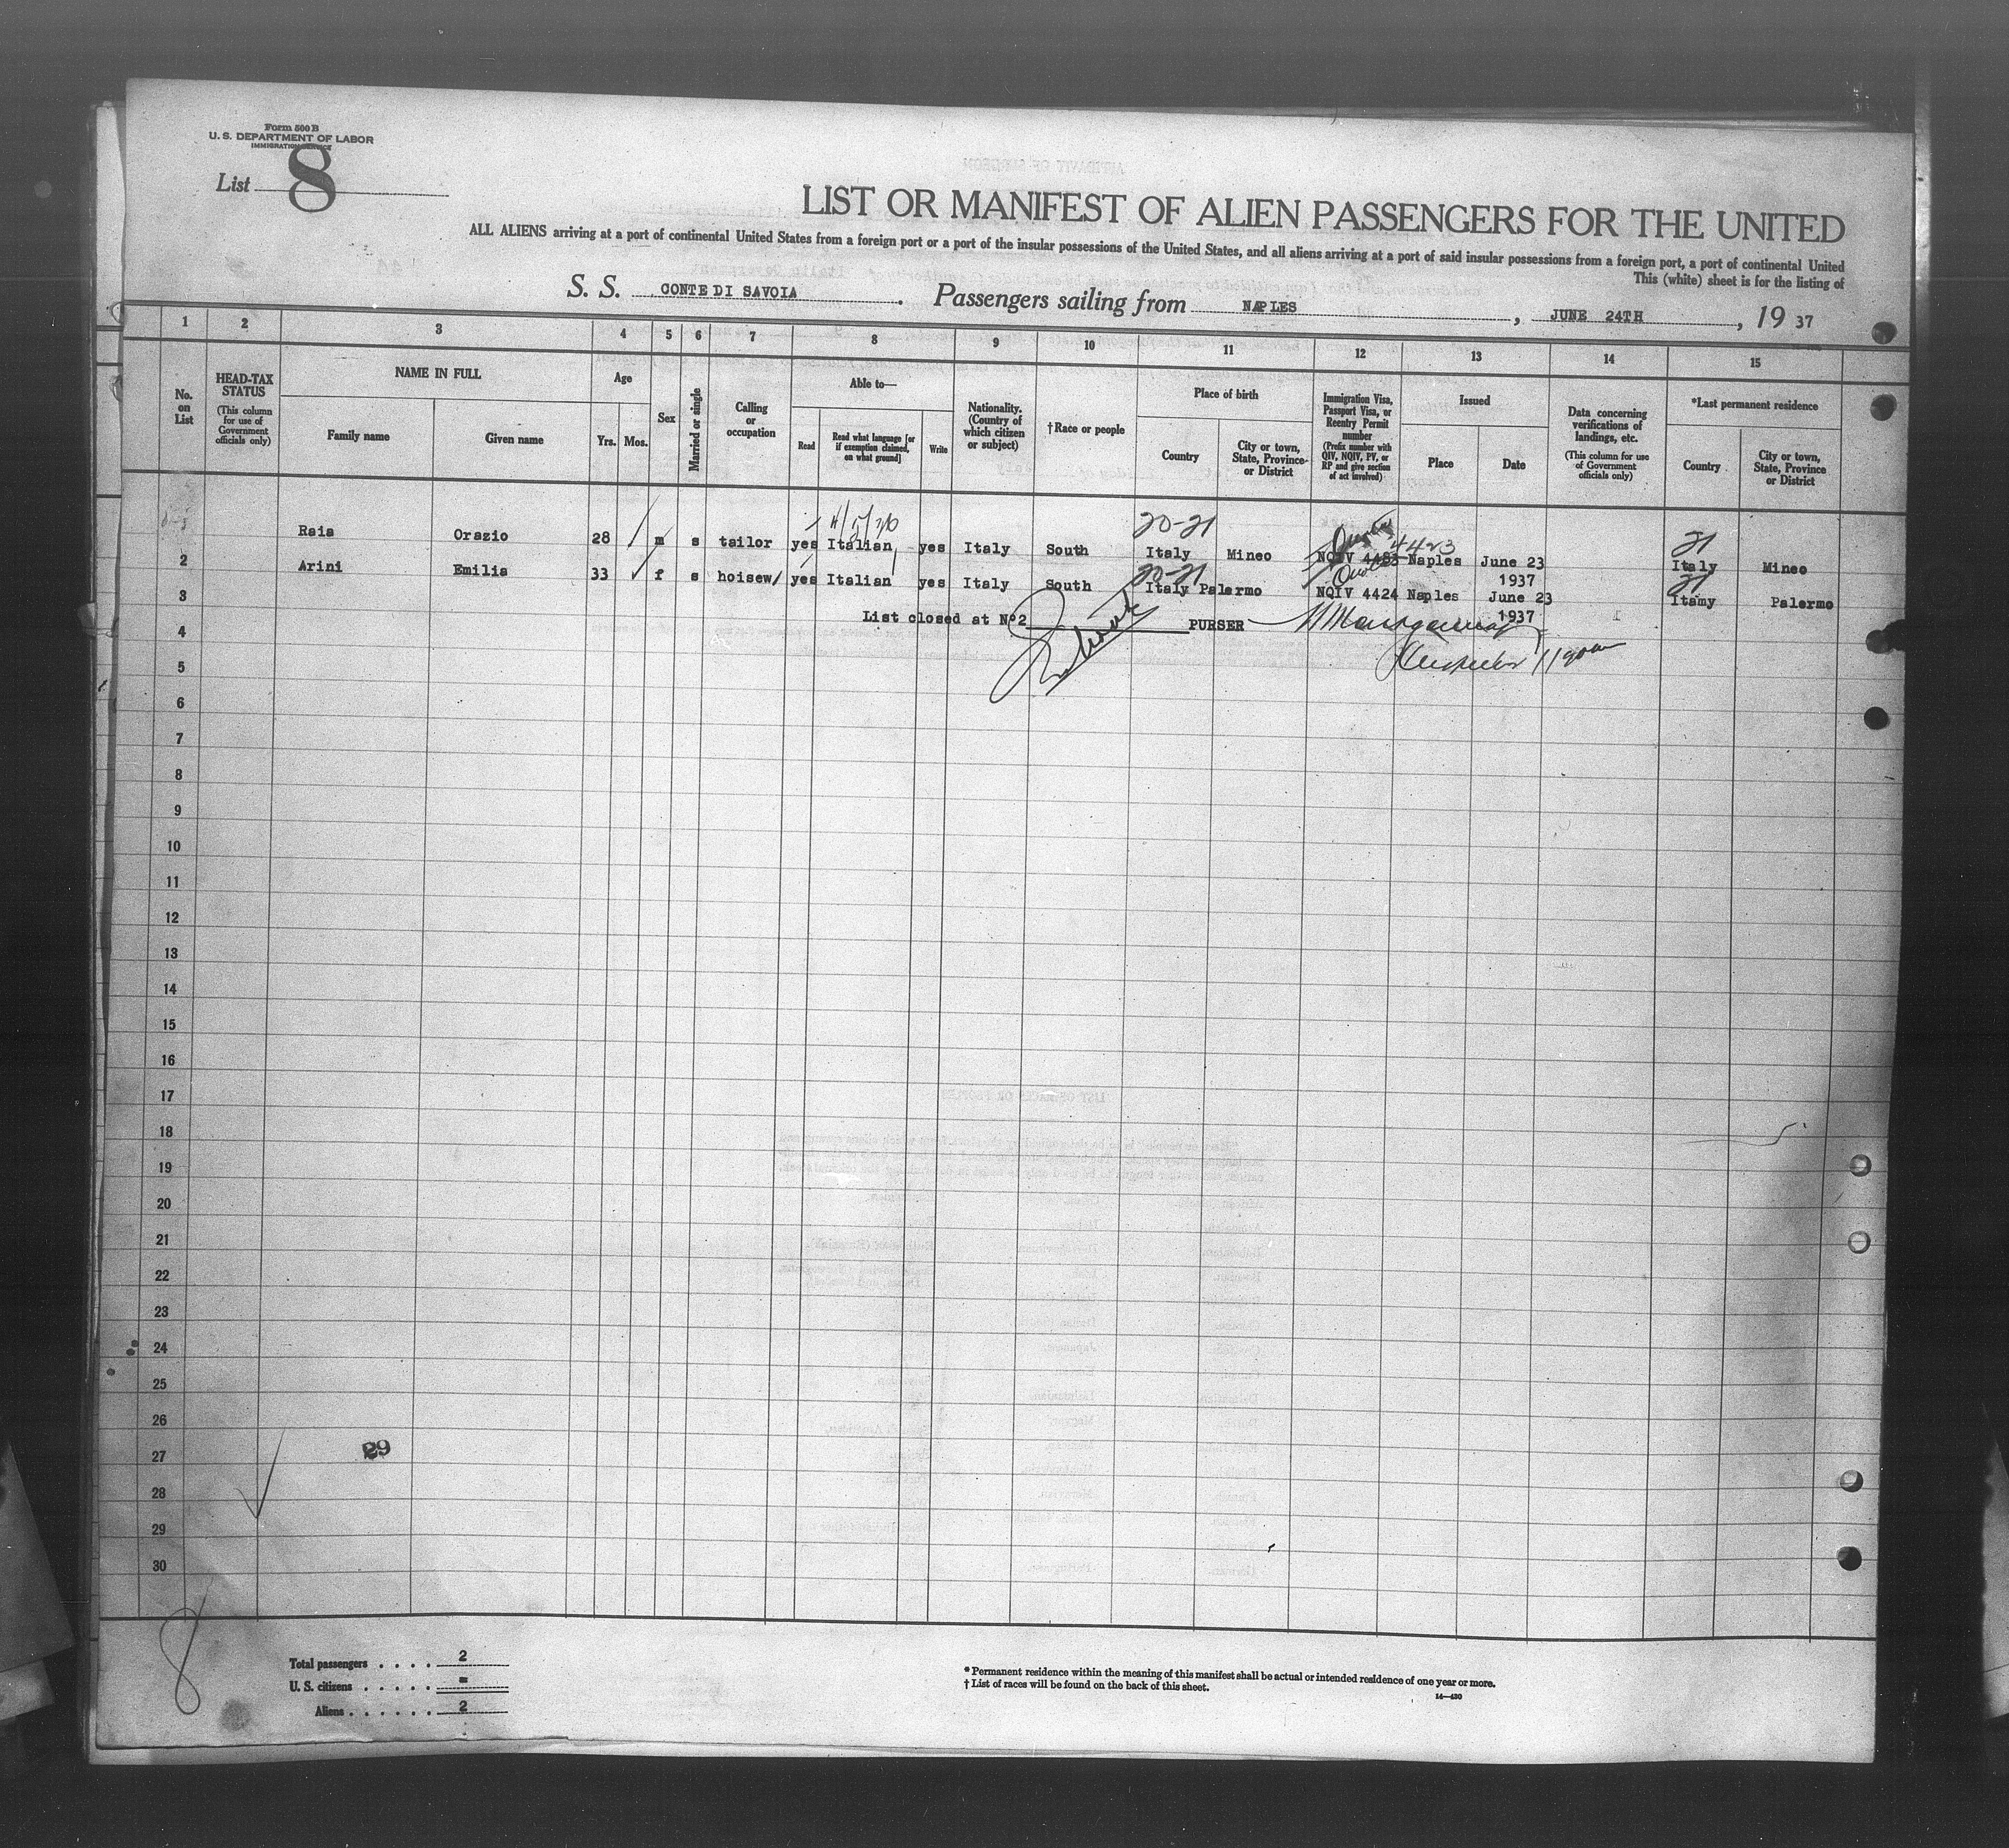 Form 500 B
U. S. DEPARTMENT OF LABOR
IMMIGRATION SERVICE
List 8
LIST OR MANIFEST OF ALIEN PASSENGERS FOR THE UNITED
ALL ALIENS arriving at a port of continental United States from a foreign port or a port of the insular possessions of the United States, and all aliens arriving at a port of said insular possessions from a foreign port, a port of continental United
This (white) sheet is for the listing of
S. S. CONTE DI SAVOIA. Passengers sailing from NAPLES, JUNE 24TH, 19 37
1 2 3 4 5 6 7 8 9 10 11 12 13 14 15
No. on List
HEAD-TAX STATUS
(This column for use of Government officials only)
NAME IN FULL
Family name Given name
Age
Yrs. Mos.
Sex
Married or single
Calling or occupation
Able to—
Read
Read what language [or if exemption claimed, on what ground]
Write
Nationality. (Country of which citizen or subject)
†Race or people
Place of birth
Country
City or town, State, Province or District
Immigration Visa, Passport Visa, or Reentry Permit number
(Prefix number with QIV, NQIV, PV, or RP and give section of act involved)
Issued
Place Date
Data concerning verifications of landings, etc.
(This column for use of Government officials only)
*Last permanent residence
Country
City or town, State, Province or District
20-21 21
4423
Raia Orazio 28 m s tailor yes Italian yes Italy South Italy Mineo NQIV 4483 Naples June 23 1937 Italy Mineo
20-21 21
2 Arini Emilia 33 f s hoisew/ yes Italian yes Italy South Italy Palermo NQIV 4424 Naples June 23 1937 Itamy Palermo
3
List closed at Nº2 PURSER
4
5
6
7
8
9
10
11
12
13
14
15
16
17
18
19
20
21
22
23
24
25
26
27
28
29
30
29
8
Total passengers . . . . 2
U. S. citizens . . . . . =
Aliens . . . . . . 2
* Permanent residence within the meaning of this manifest shall be actual or intended residence of one year or more.
† List of races will be found on the back of this sheet.
14—430